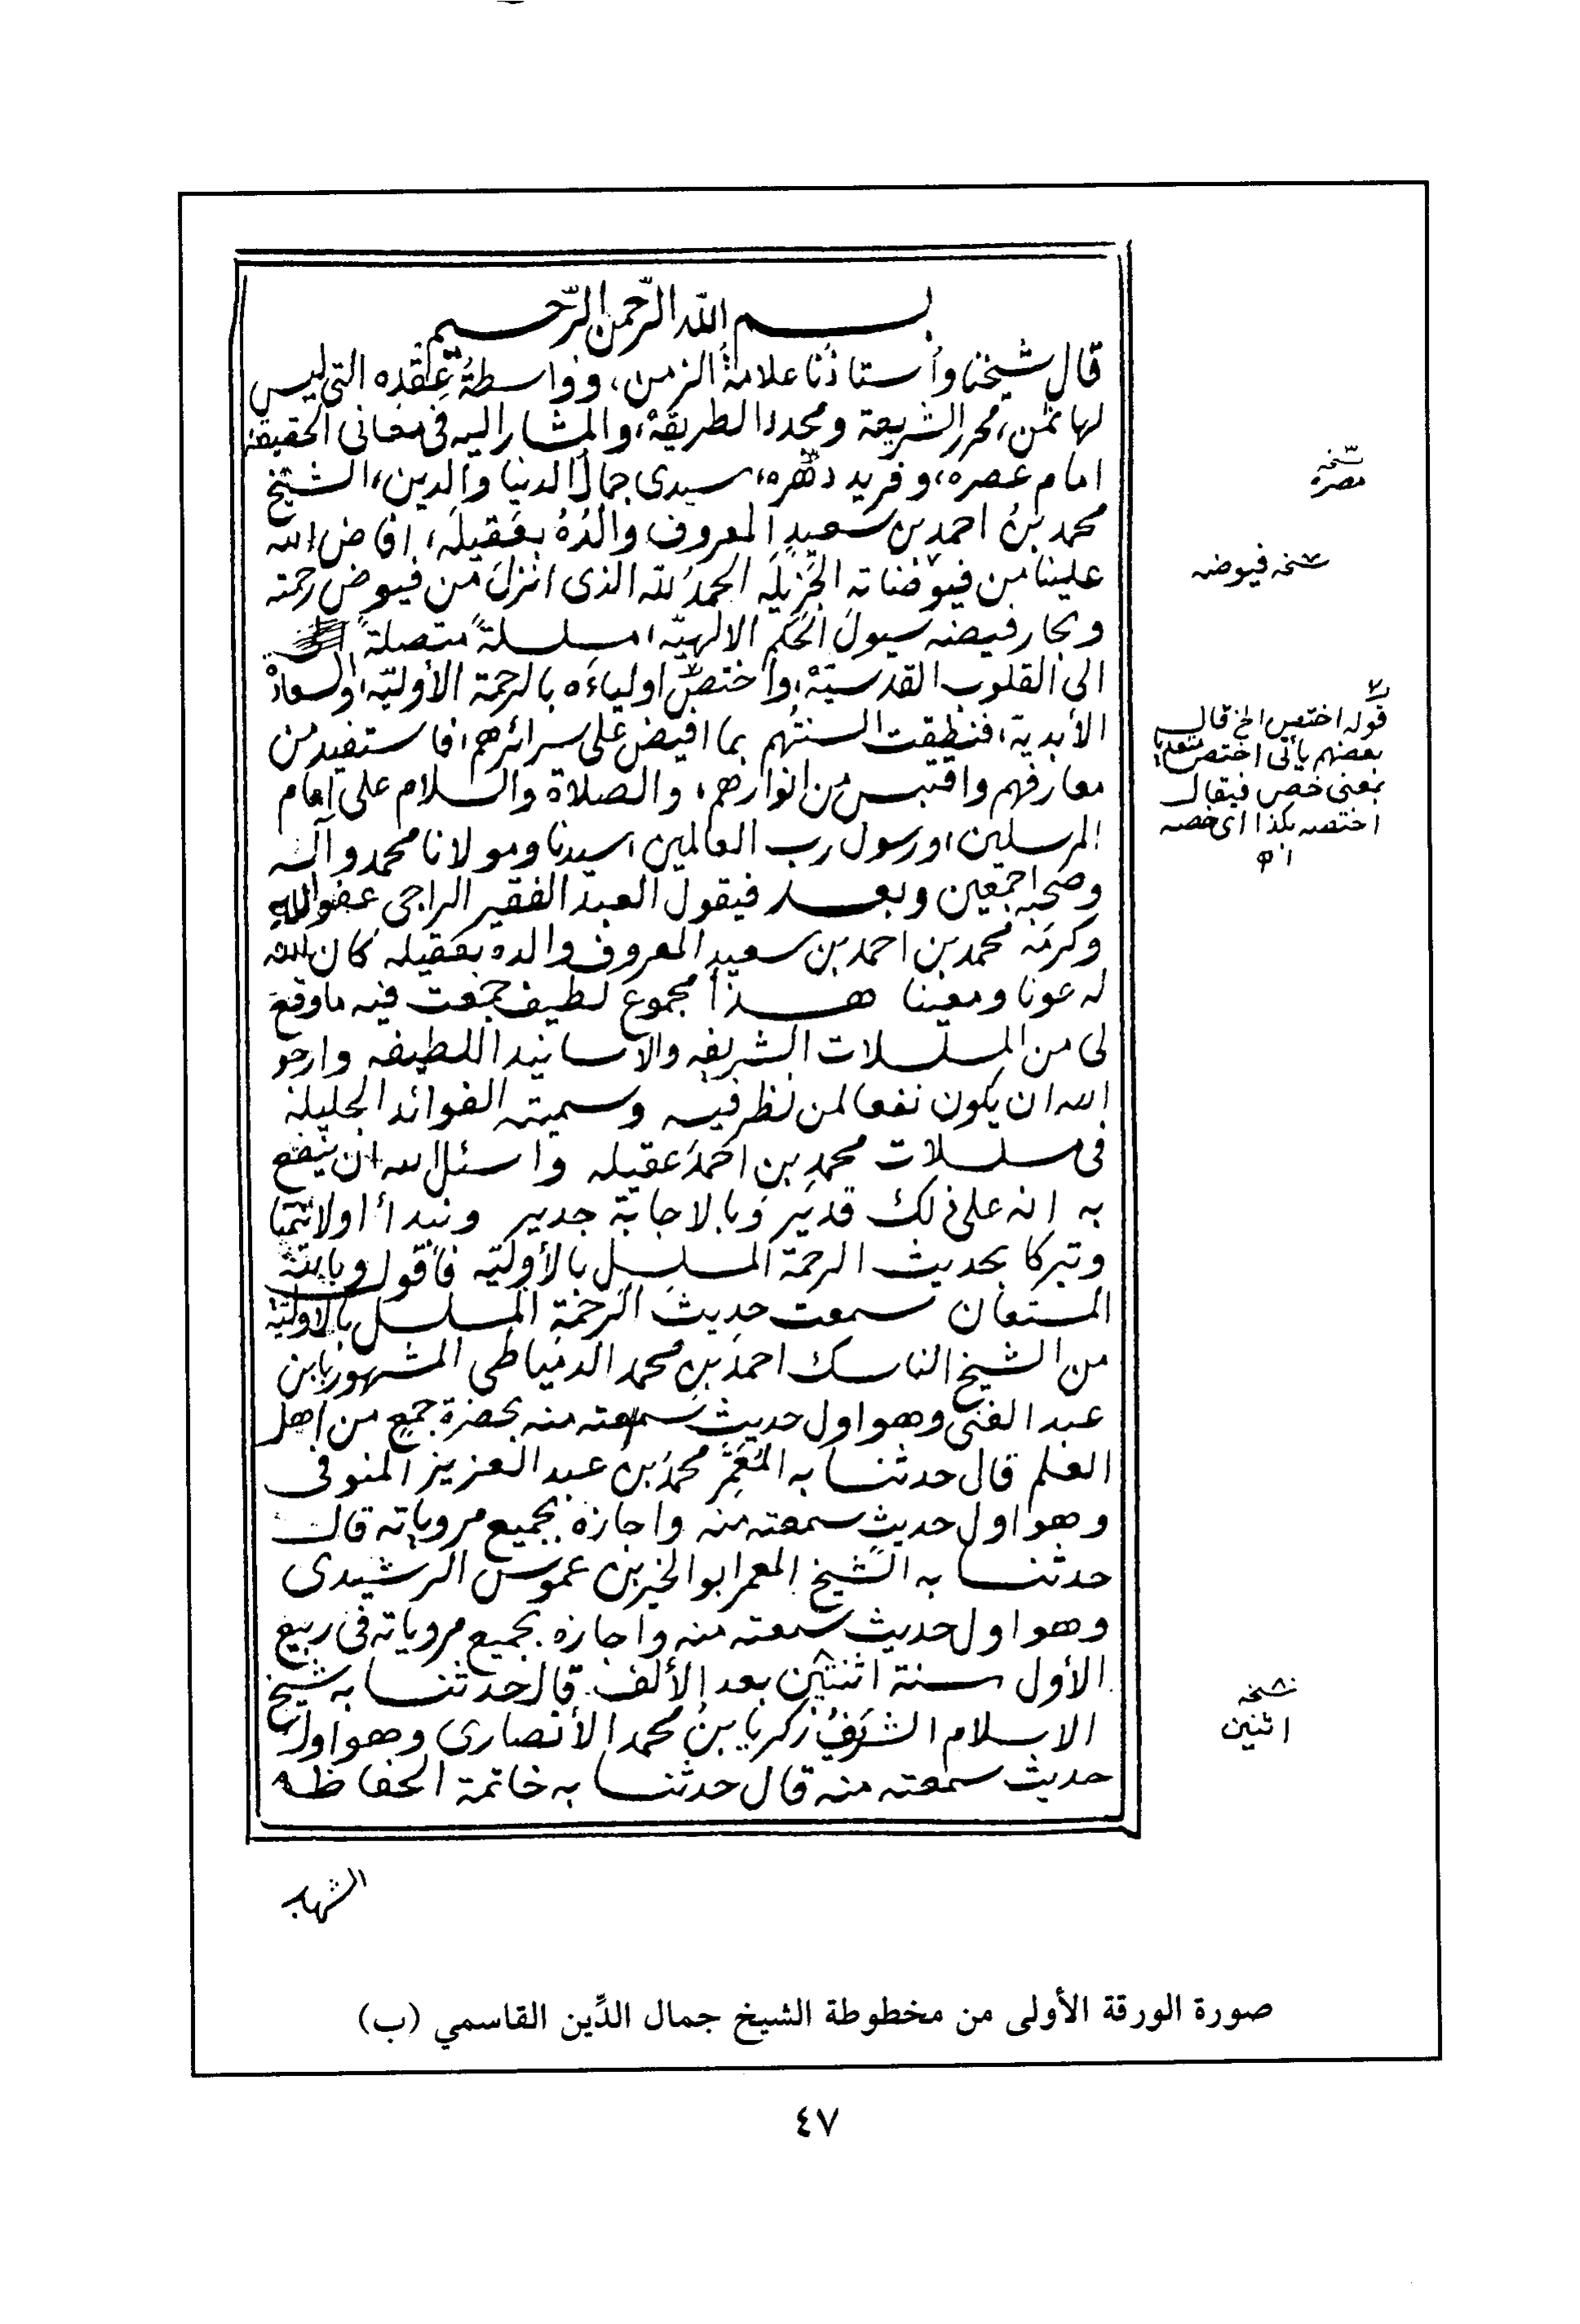 بسم الله الرحمن الرحيم
قال شيخنا وأستاذنا علامة الزمن، وواسطة عقده التي ليس
لها ثمن، محرر الشريعة ومجدد الطريقة، والمشار اليه في معاني الحقيقة
امام عصره، وفريد دهره، سيدى جمال الدنيا والدين، الشيخ
محمد بن احمد بن سعيد المعروف والده بعقيله، افاض الله
علينا من فيوضاته الجزيله الحمد لله الذى انزل من فيوض رحمته
وبحار فيضه سيول الحكم الالهية، سلسلة متصلة
الى القلوب القدسية، واختص اولياءه بالرحمة الأولية، والسعادة
الأبدية، فنطقت السنتهم بما افيض على سرائرهم، فاستفيد من
معارفهم واقتبس من انوارهم، والصلاة والسلام على امام
المرسلين، ورسول رب العالمين، سيدنا ومولانا محمد وآله
وصحبه اجمعين وبعد فيقول العبد الفقير الراجى عفو الله
وكرمه محمد بن احمد بن سعيد المعروف والده بعقيله كان الله
له عونا ومعينا هذا مجموع لطيف جمعت فيه ما وقع
لى من المسلسلات الشريفه والاسانيد اللطيفه وارجو
الله ان يكون نفعا لمن نظر فيه وسميته الفوائد الجليلة
فى مسلسلات محمد بن احمد عقيله واسئل الله ان ينفع
به انه على ذلك قدير وبالاجابة جدير ونبدأ اولا تيمنا
وتبركا بحديث الرحمة المسلسل بالأولية فأقول وبالله
المستعان سمعت حديث الرحمة المسلسل بالاولية
من الشيخ الناسك احمد بن محمد الدمياطى المشهور بابن
عبد الغنى وهو اول حديث سمعته منه بحضرة جمع من اهل
العلم قال حدثنا به المعمر محمد بن عبد العزيز المنوفى
وهو اول حديث سمعته منه واجازه بجميع مروياته قال
حدثنا به الشيخ المعمر ابو الخير بن عموس الرشيدى
وهو اول حديث سمعته منه واجازه بجميع مروياته فى ربيع
الأول سنة اثنتين بعد الألف قال حدثنا به شيخ
الاسلام الشرف زكريا بن محمد الأنصارى وهو اول
حديث سمعته منه قال حدثنا به خاتمة الحفاظ
الشهاب
نسخه
مصره
نسخه فيوضه
قوله اختص الخ قال
بعضهم يأتى اختص متعديا
بمعنى خص فيقال
اختصه بكذا اى خصه
نسخه
اثنين
صورة الورقة الأولى من مخطوطة الشيخ جمال الدِّين القاسمي (ب)
٤٧